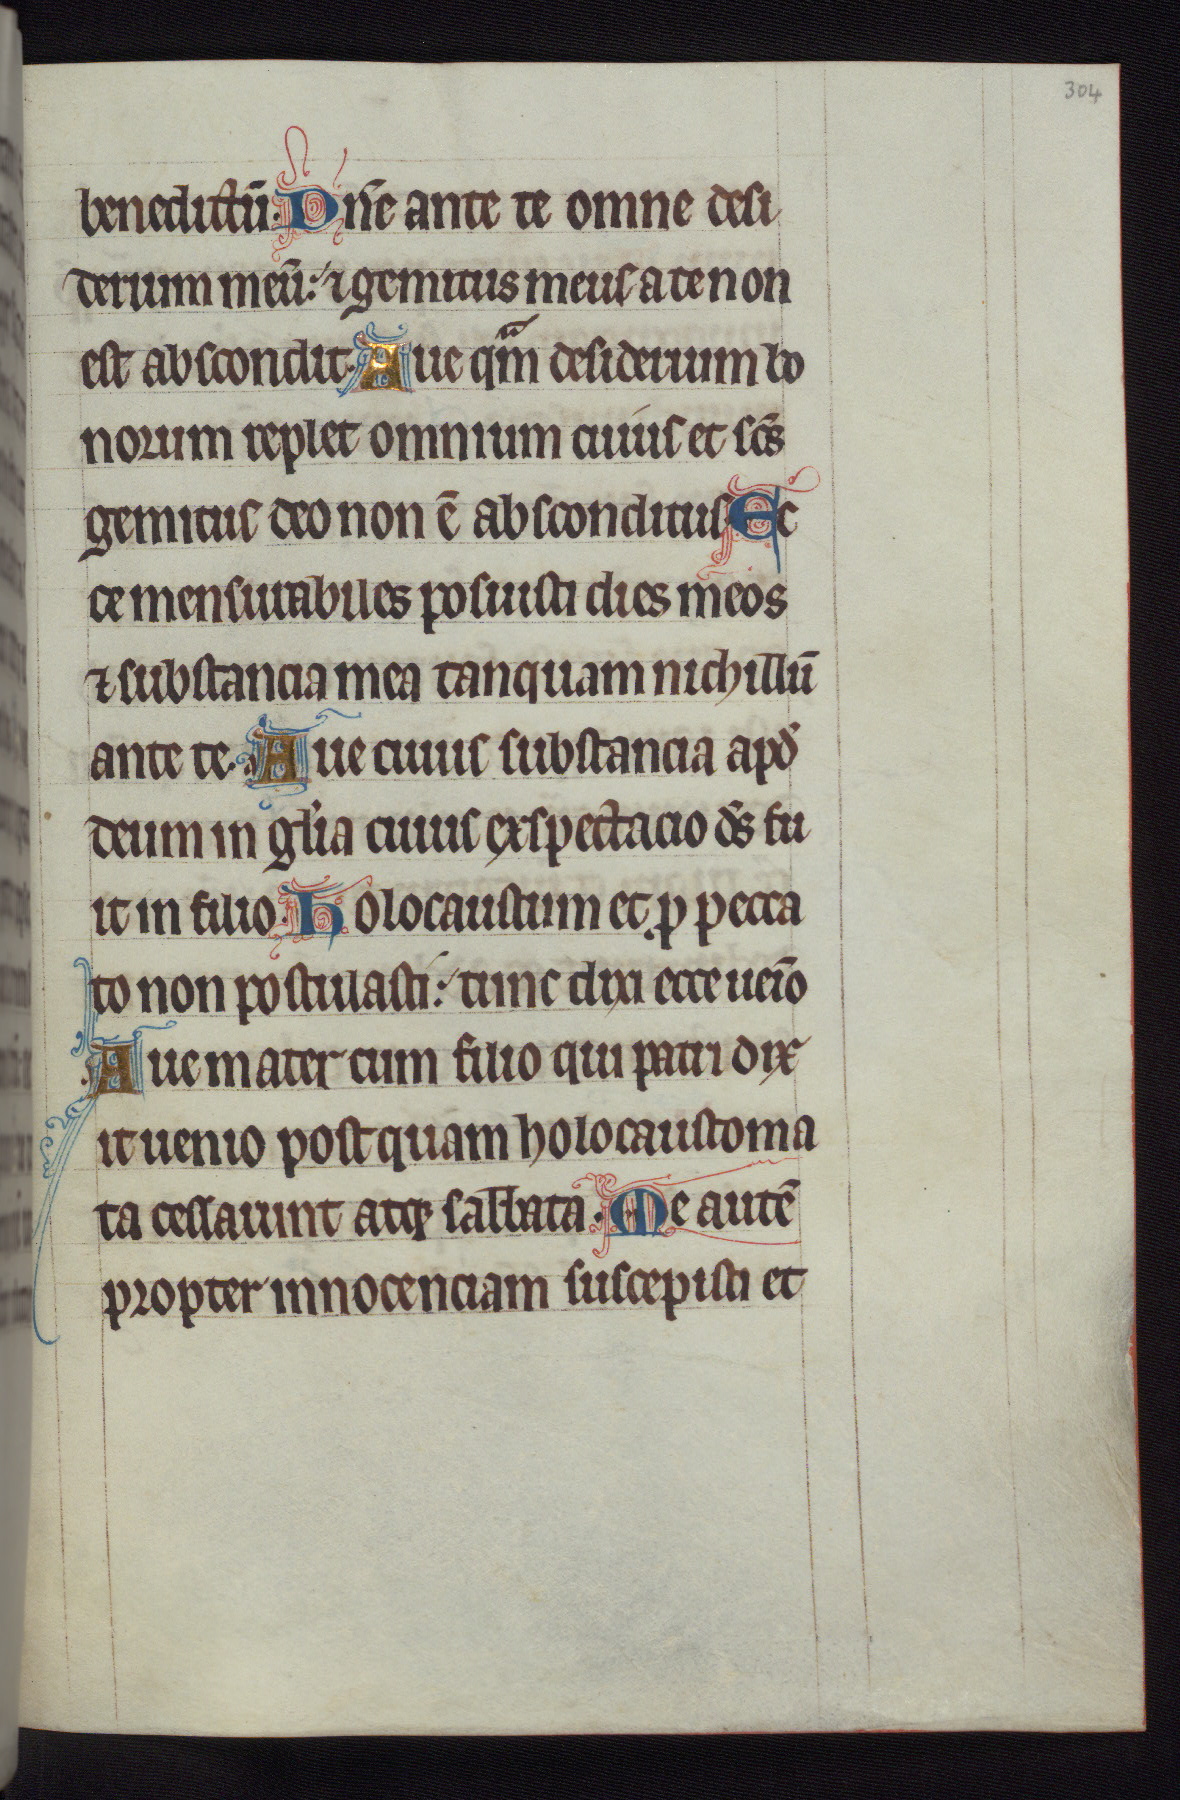 304
benedictū. Dn̄e ante te omne desi
derium meū: ⁊ gemitus meus a te non
est abscondit. Aue qᵃm desiderium bo
norum replet omnium cuius et sc̄s
gemitus deo non ē absconditus. Ec
ce mensurabiles posuisti dies meos
⁊ substancia mea tanquam nichillū
ante te. Aue cuius substancia apđ
deum in gl̄ia cuius exspectacio ds̄ fu
it in filio. Holocaustum et ꝓ pecca
to non postulasti: tunc dixi ecce uenio
Aue mater cum filio qui patri dix
it uenio postquam holocaustoma
ta cessarunt atqꝫ sabbata. Me autē
propter innocenciam suscepisti et